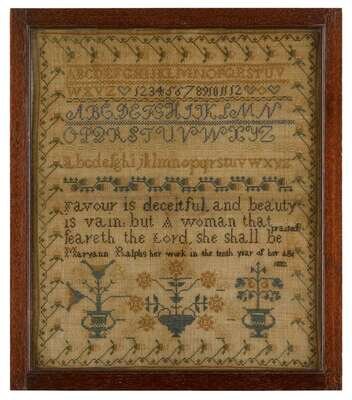 ABCDEFGHIJKLMNOPQRSTUV
WXYZ 1 2 3 4 5 6 7 8 9 10 11 12
ABCDEFGHIJKLMN
OPQRSTUVWXYZ
abcdefghijklmnopqrstuvwxyz
Favour is deceitful, and beauty
is vain: but A woman that
feareth the Lord, she shall be praised
Maryann Ralphs her work in the tenth year of her age